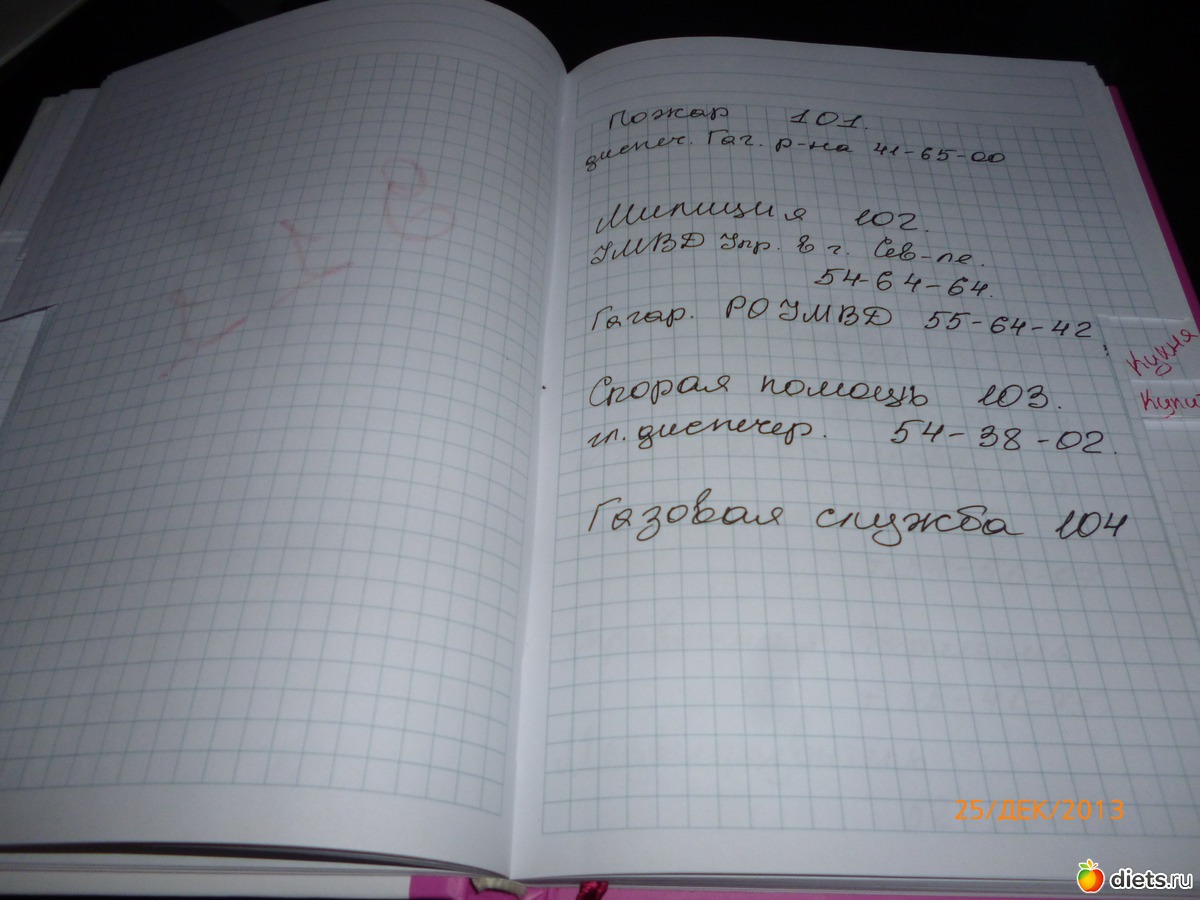 Пожар 101.
диспеч. Гаг. р-на 41-65-00
Милиция 102.
УМВД Упр. в г. Сев-ле.
54-64-64.
Гагар. РОУМВД 55-64-42
Скорая помощь 103.
гл. диспечер. 54-38-02.
Газовая служба 104
Кухня
Купит
25/ДЕК/2013
diets.ru